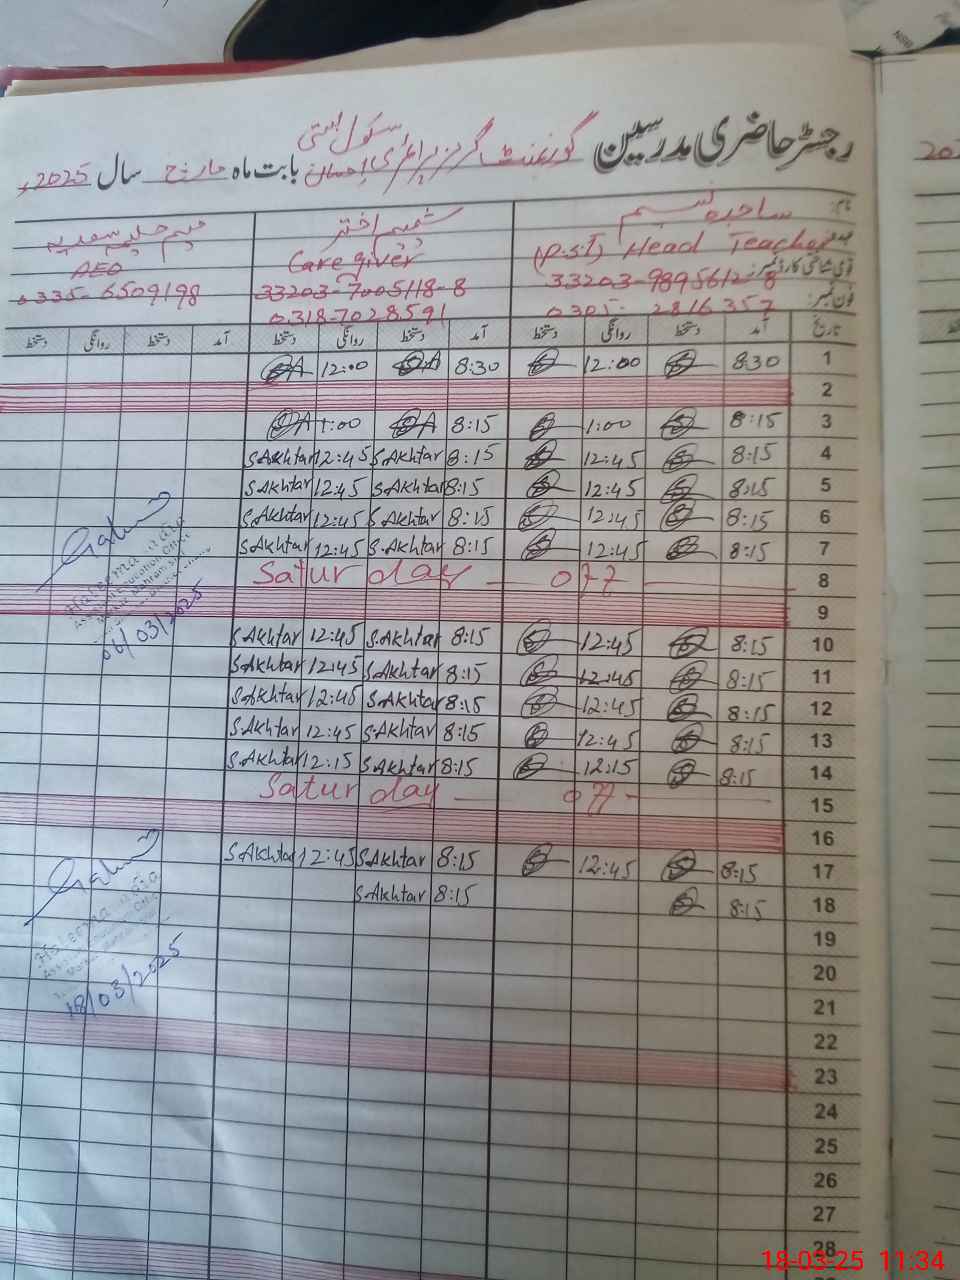 رجسٹر حاضری مدرسین گورنمنٹ گرلز پرائمری سکول بستی احسان بابت ماہ مارچ سال 2025ء
نام: ساجدہ نسیم شمیم اختر میڈم حلیمہ سعدیہ
عہدہ (P.S.T) Head Teacher Care giver AEO
قومی شناختی کارڈ نمبر: 33203-9895612-8 33203-7005118-8 0335-6509198
فون نمبر: 0305-2816357 0318-7028591
تاریخ آمد دستخط روانگی دستخط آمد دستخط روانگی دستخط آمد دستخط روانگی دستخط
1 8:30 12:00 8:30 12:00
2
3 8:15 1:00 8:15 1:00
4 8:15 12:45 8:15 S.Akhtar 12:45 S.Akhtar
5 8:15 12:45 8:15 S.Akhtar 12:45 S.Akhtar
6 8:15 12:45 8:15 S.Akhtar 12:45 S.Akhtar
7 8:15 12:45 8:15 S.Akhtar 12:45 S.Akhtar
8 Saturday off
9
10 8:15 12:45 8:15 S.Akhtar 12:45 S.Akhtar
11 8:15 12:45 8:15 S.Akhtar 12:45 S.Akhtar
12 8:15 12:45 8:15 S.Akhtar 12:45 S.Akhtar
13 8:15 12:45 8:15 S.Akhtar 12:45 S.Akhtar
14 8:15 12:15 8:15 S.Akhtar 12:15 S.Akhtar
15 Saturday off
16
17 8:15 12:45 8:15 S.Akhtar 12:45 S.Akhtar
18 8:15 8:15 S.Akhtar
19
20
21
22
23
24
25
26
27
28
Haleema
06/03/2025
Haleema
18/03/2025
18-03-25 11:34